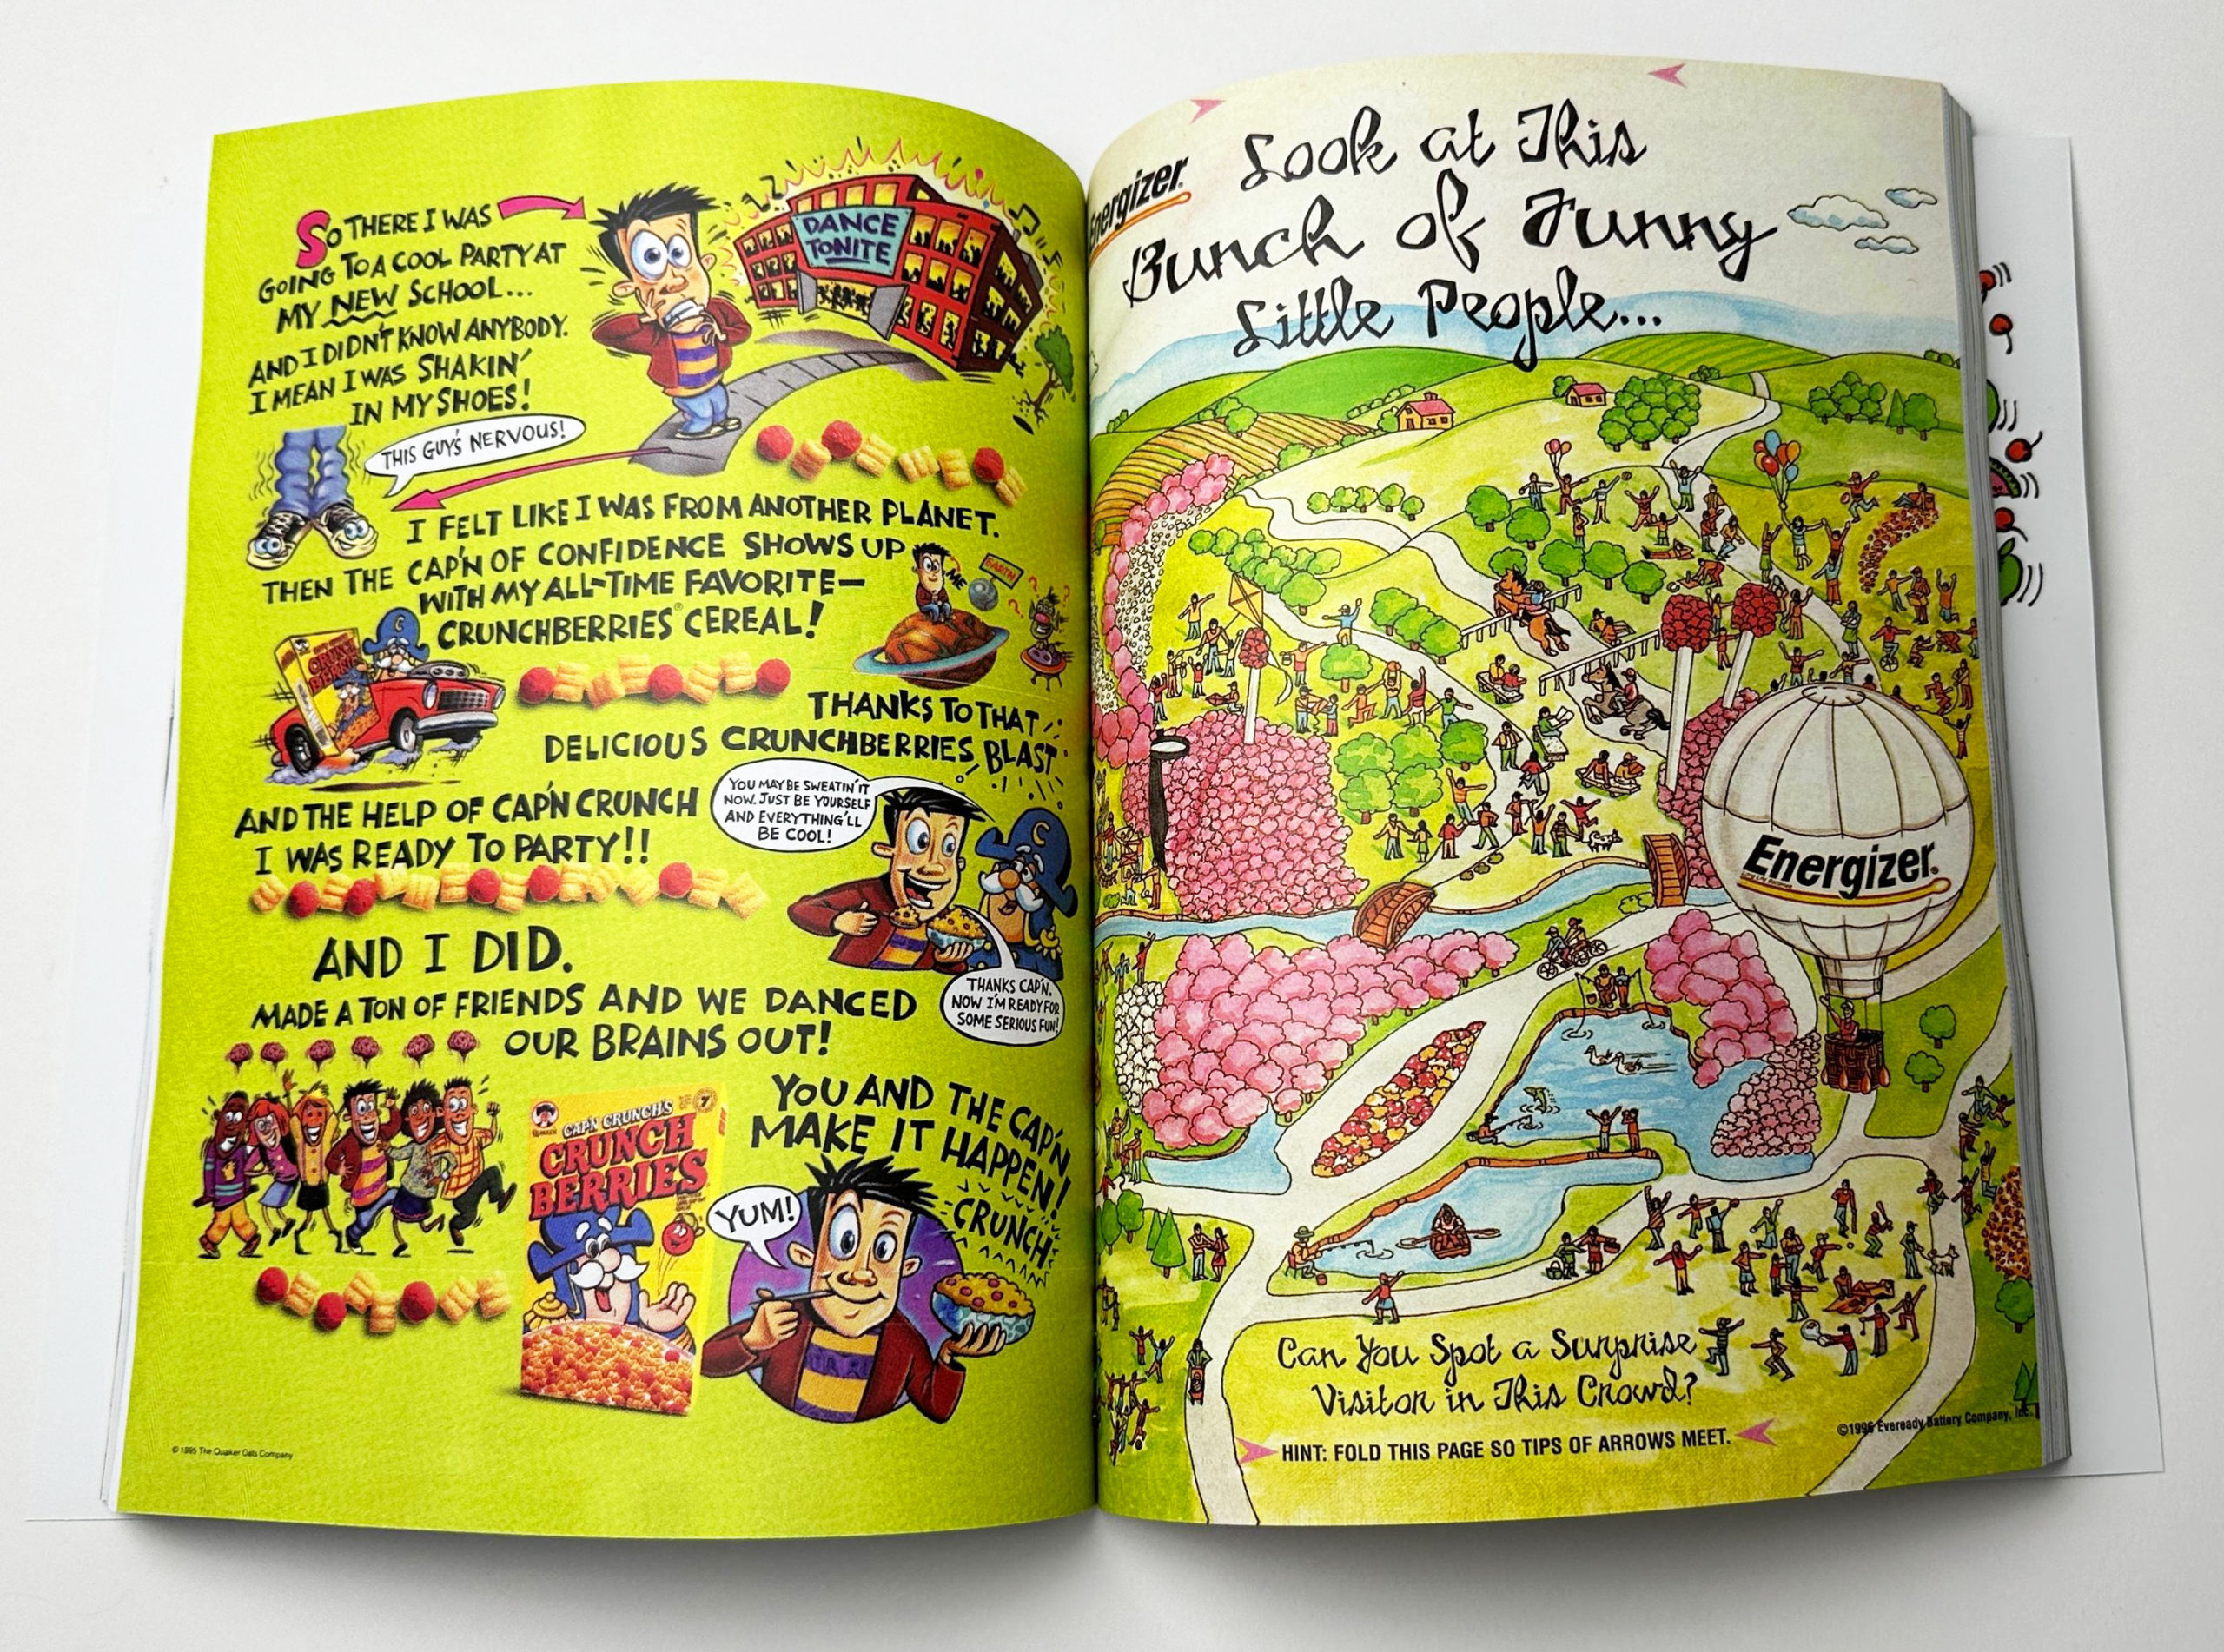 SO THERE I WAS
GOING TO A COOL PARTY AT
MY NEW SCHOOL...
AND I DIDN'T KNOW ANYBODY.
I MEAN I WAS SHAKIN'
IN MY SHOES!
DANCE
TONITE
THIS GUY'S NERVOUS!
I FELT LIKE I WAS FROM ANOTHER PLANET.
THEN THE CAP'N OF CONFIDENCE SHOWS UP
WITH MY ALL-TIME FAVORITE—
CRUNCHBERRIES® CEREAL!
ME
EARTH
C
CRUNCH
BERRIES
THANKS TO THAT
DELICIOUS CRUNCHBERRIES BLAST
AND THE HELP OF CAP'N CRUNCH
I WAS READY TO PARTY!!
YOU MAY BE SWEATIN' IT
NOW. JUST BE YOURSELF
AND EVERYTHING'LL
BE COOL!
C
THANKS CAP'N.
NOW I'M READY FOR
SOME SERIOUS FUN!
AND I DID.
MADE A TON OF FRIENDS AND WE DANCED
OUR BRAINS OUT!
YOU AND THE CAP'N
MAKE IT HAPPEN!
CAP'N CRUNCH'S
CRUNCH
BERRIES
7
YUM!
CRUNCH
© 1995 The Quaker Oats Company
Energizer®
Look at This
Bunch of Funny
Little People...
Energizer®
Can You Spot a Surprise
Visitor in This Crowd?
HINT: FOLD THIS PAGE SO TIPS OF ARROWS MEET.
©1996 Eveready Battery Company, Inc.